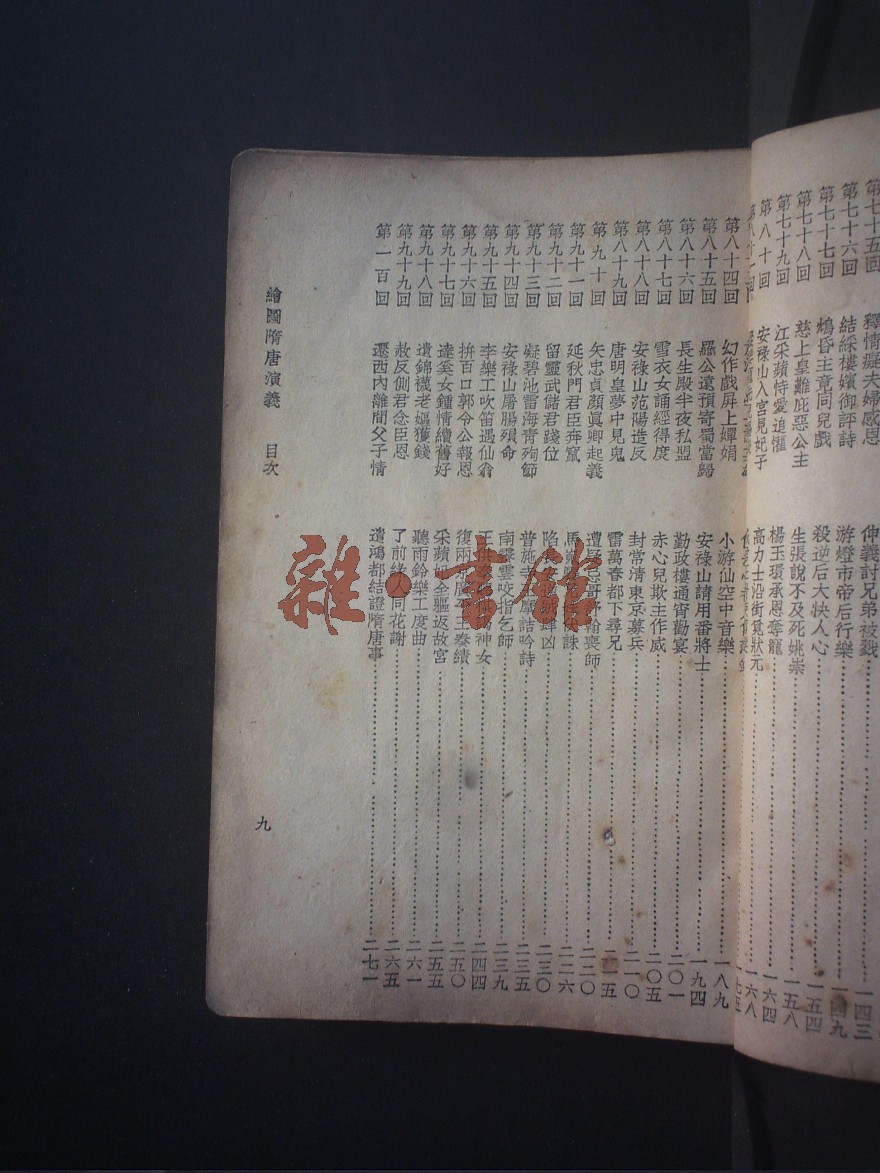 第七十五回 釋情癡夫婦感恩 伸義討兄弟被戮
第七十六回 結綵樓嬪御評詩 游燈市帝后行樂 一四三
第七十七回 鴆昏主竟同兒戲 殺逆后大快人心 一四九
第七十八回 慈上皇難庇惡公主 生張說不及死姚崇 一五四
第七十九回 江采蘋恃愛追懽 楊玉環承恩奪寵 一五八
第八十回 安祿山入宮見妃子 高力士沿街覓狀元 一六四
一六八
一七五
第八十四回 幻作戲屏上嬋娟 小游仙空中音樂 一八九
第八十五回 羅公遠預寄蜀當歸 安祿山請用番將士 一九四
第八十六回 長生殿半夜私盟 勤政樓通宵勸宴 二〇一
第八十七回 雪衣女誦經得度 赤心兒欺主作威 二〇五
第八十八回 安祿山范陽造反 封常清東京募兵 二一〇
第八十九回 唐明皇夢中見鬼 雷萬春都下尋兄 二一五
第九十回 矢忠貞顏眞卿起義 遭疑忌哥舒翰喪師 二二〇
第九十一回 延秋門君臣奔竄 馬 誅 二二六
第九十二回 留靈武儲君踐位 陷長安 肆凶 二三〇
第九十三回 凝碧池雷海青殉節 普施寺 摩詰吟詩 二三五
第九十四回 安祿山屠腸殞命 南霽雲咬指乞師 二三九
第九十五回 李樂工吹笛遇仙翁 王 神女 二四四
第九十六回 拚百口郭令公報恩 復兩京廣平王奏績 二五〇
第九十七回 達奚女鍾情續舊好 采蘋妃全軀返故宮 二五五
第九十八回 遺錦襪老嫗獲錢 聽雨鈴樂工度曲 二六一
第九十九回 赦反側君念臣恩 了前緣人同花謝 二六五
第一百回 遷西內離間父子情 遣鴻都結證隋唐事 二七一
繪圖隋唐演義 目次
九
雜·書館